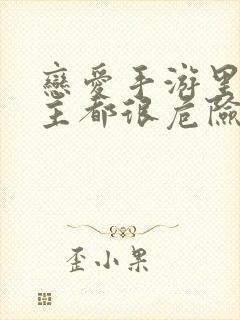 戀愛手游里
主都很危險
歪小果